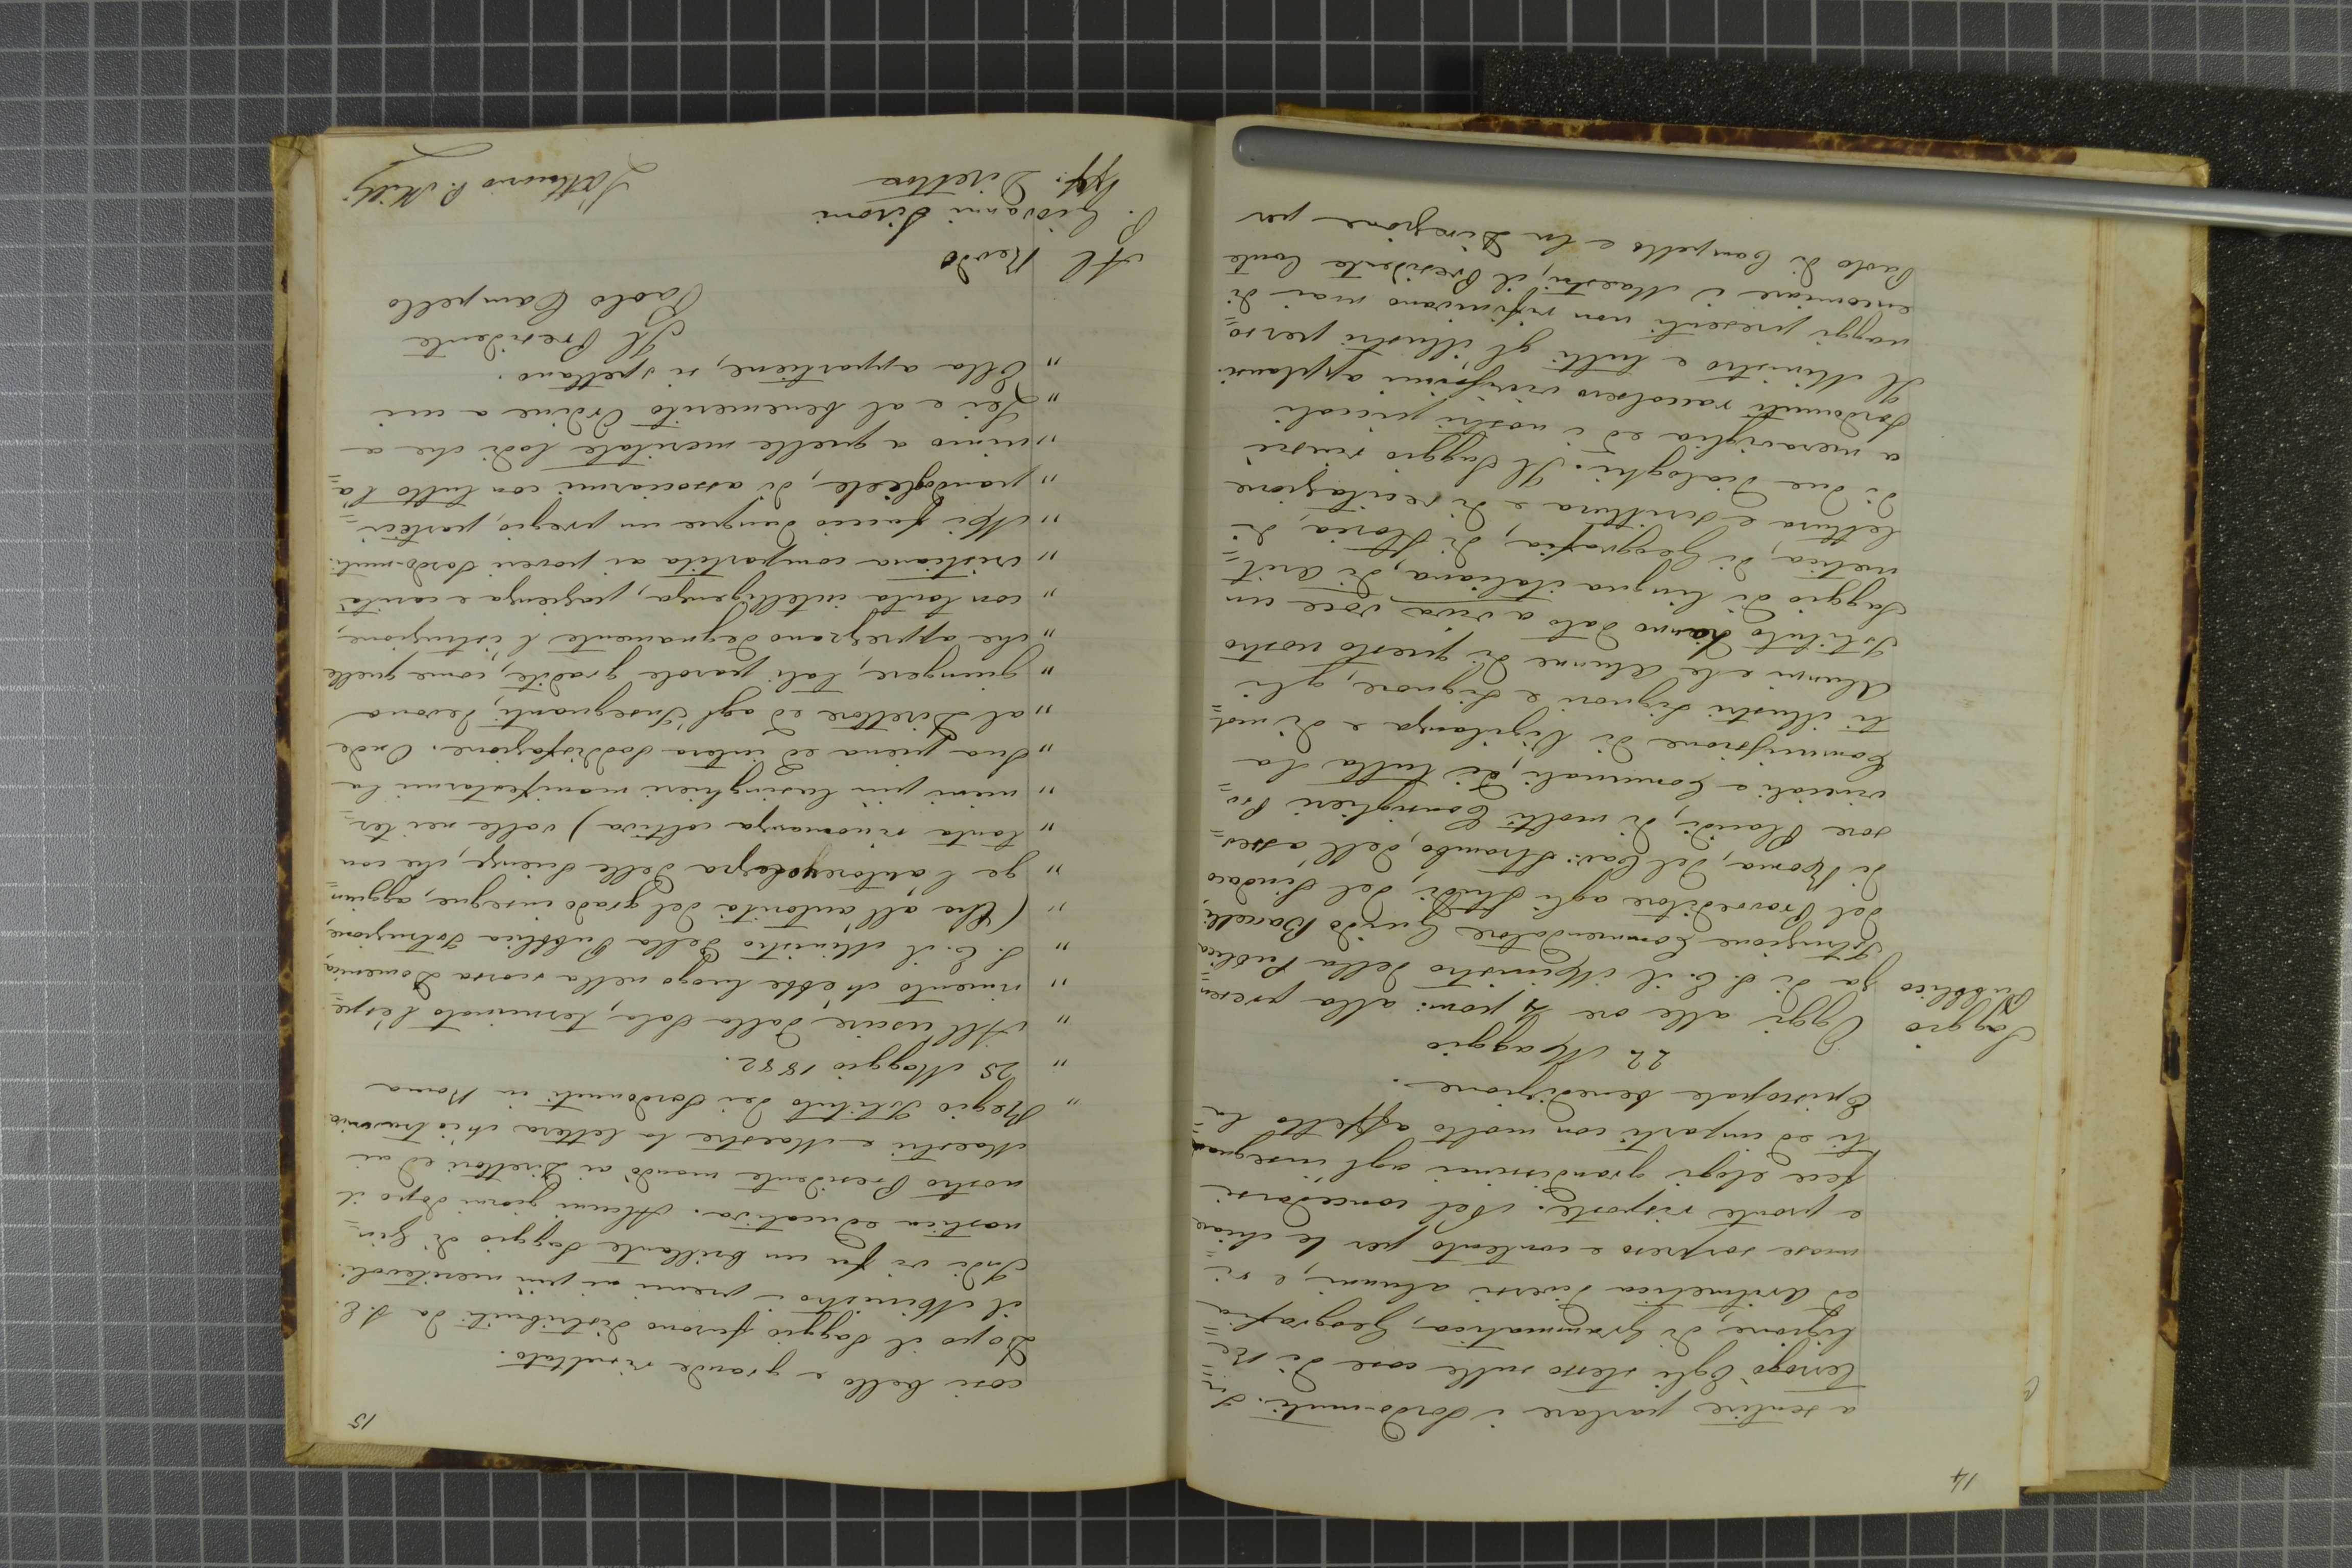 14
a sentire parlare i sordo-muti. In=
terrogò Egli stesso sulle cose di Re=
ligione, di Grammatica, Geografia
ed Aritmetica diversi alunni, e ri=
mase sorpreso e contento per le chiare
e pronte risposte. Nel concedarsi
fece elogi grandissimi agl'insegnan=
ti ed impartì con molto affetto la
Episcopale benedizione.
22 Maggio
Saggio
Pubblico
Oggi alle ore 4 pom: alla presen=
za di S. E. il Ministro della Pubblica
Istruzione Commendatore Guido Baccelli,
del Provveditore agli Studi, del Sindaco
di Roma, del Cav: Strambo, dell'asses=
sore Placidi, di molti Consiglieri Pro=
vinciali e Comunali, di tutta la
Commissione di Vigilanza e di mol=
ti illustri Signori e Signore, gli
Alunni e le Alunne di questo nostro
Istituto hanno dato a viva voce un
Saggio di lingua italiana, di Arit=
metica, di Geografia, di Storia, di
lettura e scrittura e di recitazione
di due Dialoghi. Il Saggio riuscì
a meraviglia ed i nostri piccoli
sordomuti raccolsero vivissimi applausi.
Il Ministro e tutti gl'illustri perso=
naggi presenti non rifinivano mai di
encomiare i Maestri, il Presidente Conte
Paolo di Campello e la Direzione per
15
così bello e grande risultato.
Dopo il Saggio furono distribuiti da S. E.
il Ministro i premi ai più meritevoli.
Indi vi fu un brillante Saggio di Gin=
nastica educativa. Alcuni giorni dopo il
nostro Presidente mandò ai Direttori ed ai
Maestri e Maestre la lettera ch'io trascrivo
" Regio Istituto dei Sordomuti in Roma
" 25 Maggio 1882.
" All'uscire dalla Sala, terminato l'espe=
" rimento ch'ebbe luogo nella scorsa Domenica,
" S. E. il Ministro della Pubblica Istruzione,
" (che all'autorità del grado insigne, aggiun=
" ge l'autorevolezza delle scienze, che con
" tanta rinomanza coltiva) volle nei ter=
" mini più lusinghieri manifestarmi la
" Sua piena ed intera soddisfazione. Onde
" al Direttore ed agl'Insegnanti devono
" giungere, tali parole gradite, come quelle
" che apprezzano degnamente l'istruzione,
" con tanta intelligenza, pazienza e carità
" cristiana compartita ai poveri sordo-muti.
" Mi faccio dunque un pregio, parteci=
" pandogliele, di associarmi con tutto l'a=
" nimo a quelle meritate lodi che a
" Lei e al benemerito Ordine a cui
" Ella appartiene, si spettano.
Il Presidente
Paolo Campello
Al Revdo
P. Giovanni Sironi
Direttore